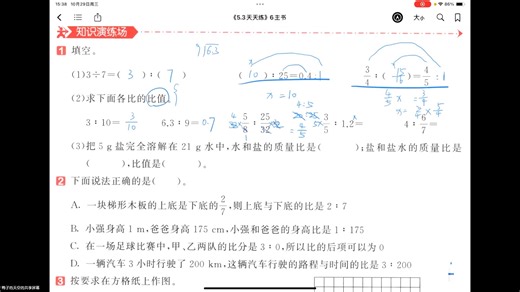 15:38 10月29日周三
《5.3天天练》6主书
86%
大小
知识演练场
1 填空。
(1)3÷7=( 3 )∶( 7 ) ( 10 )∶25=0.4∶1 3/4∶( 15/16 )=4/5∶1
x=10
4/5 x = 3/4
(2)求下面各比的比值。
3∶10= 3/10 6.3∶9= 0.7 5/8∶25/32= 4/5 3/5∶1.2= 4∶6/7=
(3)把 5 g 盐完全溶解在 21 g 水中,水和盐的质量比是( );盐和盐水的质量比是
( ),比值是( )。
2 下面说法正确的是( )。
A. 一块梯形木板的上底是下底的2/7,则上底与下底的比是 2∶7
B. 小强身高 1 m,爸爸身高 175 cm,小强和爸爸的身高比是 1∶175
C. 在一场足球比赛中,甲、乙两队的比分是 3∶0,所以比的后项可以为 0
D. 一辆汽车 3 小时行驶了 200 km,这辆汽车行驶的路程与时间的比是 3∶200
3 按要求在方格纸上作图。